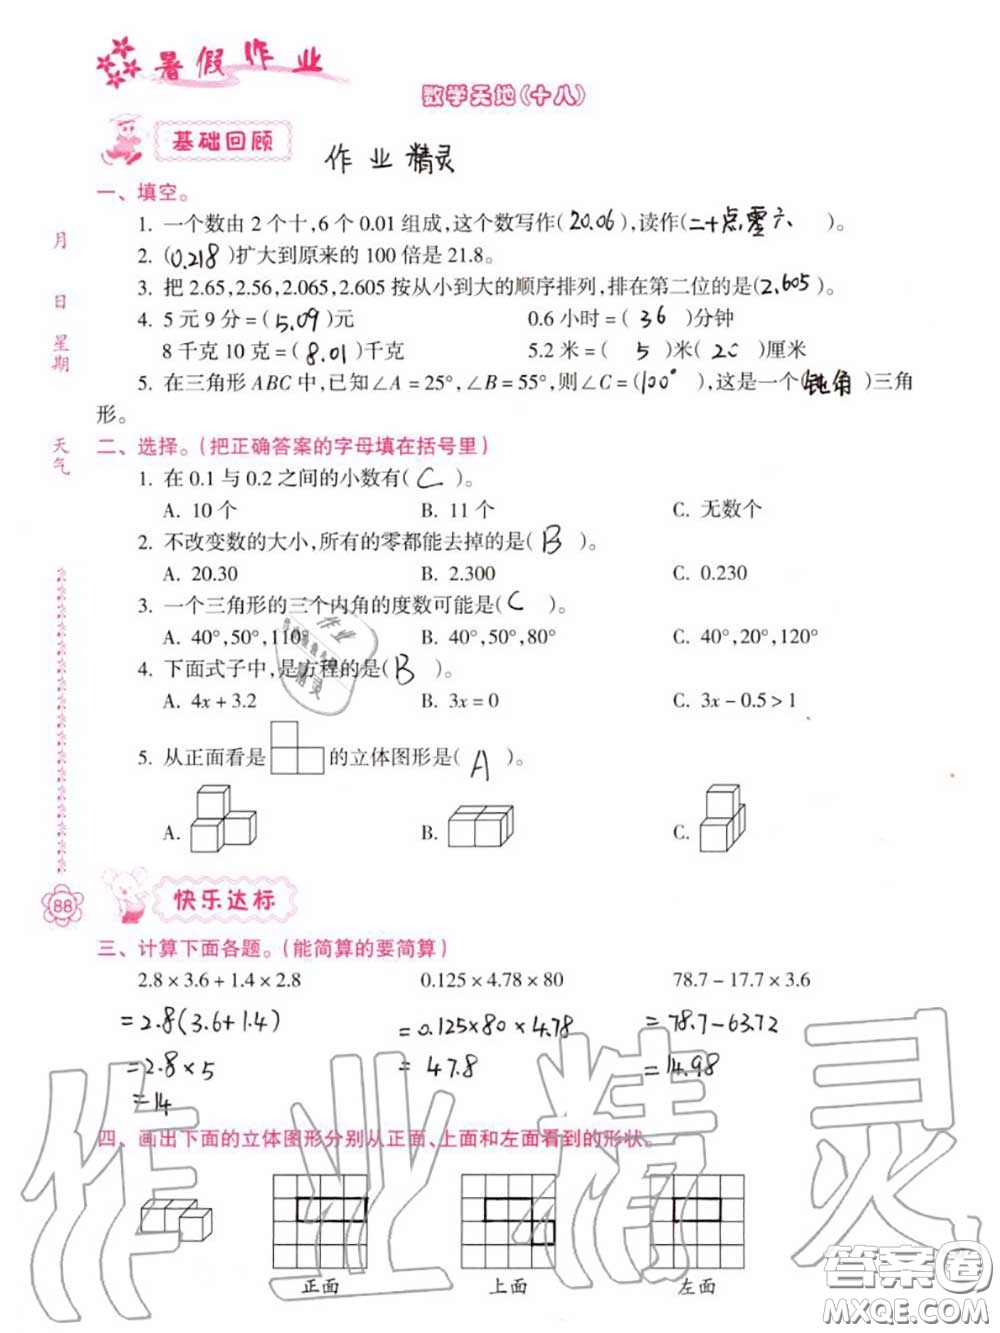 暑假作业
数学天地(十八)
基础回顾
作业精灵
一、填空。
1. 一个数由 2 个十,6 个 0.01 组成,这个数写作(20.06),读作(二十点零六)。
2. (0.218)扩大到原来的 100 倍是 21.8。
3. 把 2.65,2.56,2.065,2.605 按从小到大的顺序排列,排在第二位的是(2.605)。
4. 5 元 9 分=(5.09)元 0.6 小时=(36)分钟
8 千克 10 克=(8.01)千克 5.2 米=(5)米(20)厘米
5. 在三角形 ABC 中,已知∠A = 25°,∠B = 55°,则∠C =(100°),这是一个(钝角)三角
形。
二、选择。(把正确答案的字母填在括号里)
1. 在 0.1 与 0.2 之间的小数有(C)。
A. 10 个 B. 11 个 C. 无数个
2. 不改变数的大小,所有的零都能去掉的是(B)。
A. 20.30 B. 2.300 C. 0.230
3. 一个三角形的三个内角的度数可能是(C)。
A. 40°,50°,110° B. 40°,50°,80° C. 40°,20°,120°
4. 下面式子中,是方程的是(B)。
A. 4x + 3.2 B. 3x = 0 C. 3x − 0.5 > 1
5. 从正面看是 的立体图形是(A)。
A. B. C.
月 日 星期 天气
88
快乐达标
三、计算下面各题。(能简算的要简算)
2.8 × 3.6 + 1.4 × 2.8 0.125 × 4.78 × 80 78.7 − 17.7 × 3.6
=2.8(3.6+1.4) =0.125×80×4.78 =78.7−63.72
=2.8×5 =47.8 =14.98
=14
四、画出下面的立体图形分别从正面、上面和左面看到的形状。
正面 上面 左面
作业精灵
答案圈
MXQE.COM